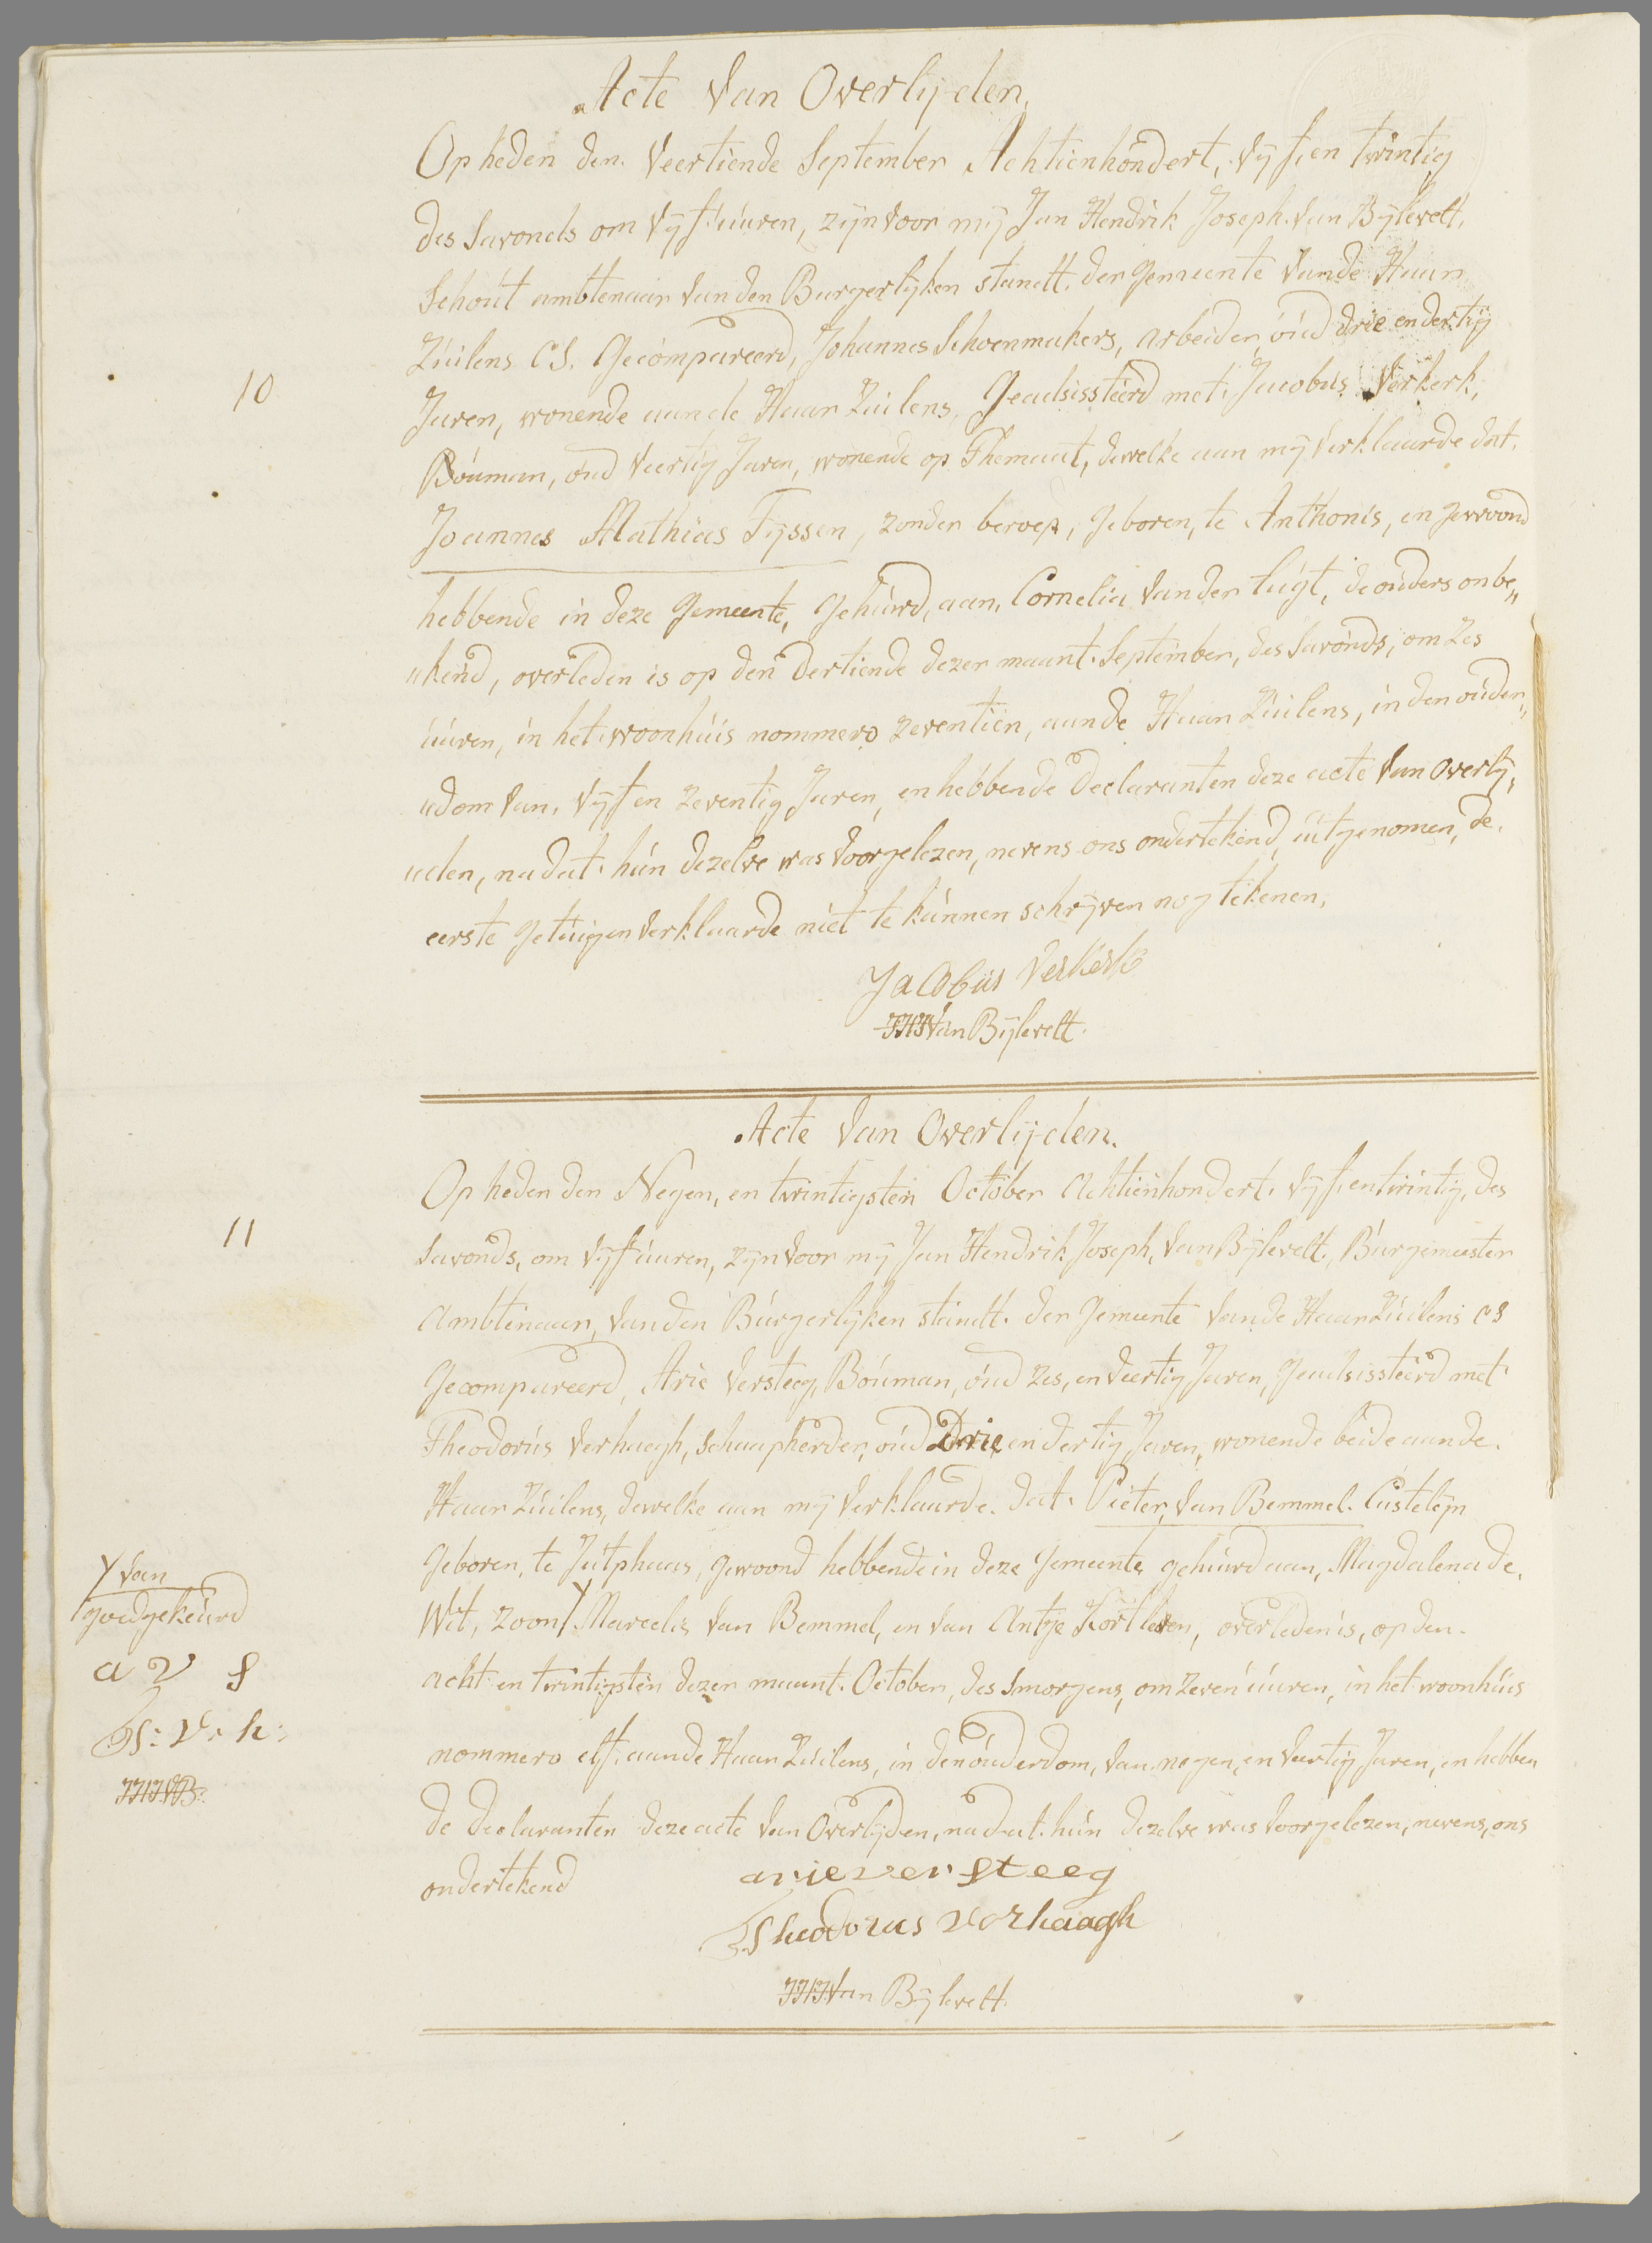 Acte Van Overlijden,
Op heden den. Veertiende September Achtienhondert, Vijf, en twintig
des Savonds om Vijf uuren, zijn voor mij Jan Hendrik Joseph. Van Bijlevelt,
Schout ambtenaar Van den Burgerlijken standt. der gemeente Van de Haar
Zuilens CS. Gecompareerd, Johannes Schoenmakers, arbeider, oud drie en dertig
10
Jaren, wonende aan de Haar Zuilens, Geadsissteerd met. Jacobus Verkerk,
Bouman, oud Veertig Jaren, wonende op Themaat, dewelke aan mij Verklaarde dat.
Joannes Mathias Tijssen, zonder beroep, geboren, te Anthonis, en gewoond
hebbende in deze gemeente, gehuwd, aan, Cornelia Van der lugt, de ouders onbe„
„kend, overleden is op den dertiende dezer maant. September, des Savonds, om Zes
uuren, in het woonhuis nommero zeventien, aan de Haar Zuilens, in den ouder„
„dom Van, Vijf en zeventig Jaren, en hebben de declaranten deze acte Van Overlij„
„den, na dat. hun dezelve was Voorgelezen, nevens ons ondertekend, uitgenomen, de.
eerste getuigen Verklaarde niet te kunnen schrijven nog tekenen,
Jacobus Verkerk
JHJ Van Bijlevelt.
Acte Van Overlijden.
Op heden den Negen, en twintigsten October Achtienhondert. Vijf, en twintig, des
11
Savonds, om Vijf uuren, zijn Voor mij Jan Hendrik Joseph, Van Bijlevelt, Burgemeester
Ambtenaar, Van den Burgerlijken standt. der gemeente Van de Haar Zuilens CS
Gecompareerd, Arie Versteeg, Bouman, oud zes, en Veertig Jaren, geadsissteerd met
Theodorus Verhaagh, Schaapherder, oud Drie en dertig Jaren, wonende beide aan de.
Haar Zuilens, dewelke aan mij Verklaarde. dat. Pieter, Van Bemmel. Castelijn
geboren, te Jutphaas, gewoond hebbende in deze gemeente gehuwd aan, Magdalena de.
Y Van
goedgekeurd
Wit, zoon Y Marcelis Van Bemmel, en Van Antje Kortleven, overleden is, op den.
a V S
acht en twintigsten dezer maant. October, des Smorgens, om zeven uuren, in het woonhuis
Th: V: h:
nommero elf. aan de Haar Zuilens, in den ouderdom, Van negen, en Veertig Jaren, en hebben
JHJ.VB.
de declaranten deze acte Van Overlijden, na dat. hun dezelve was Voorgelezen, nevens, ons
ondertekend
arie versteeg
Theodorus Verhaagh
JHJ Van Bijlevelt.